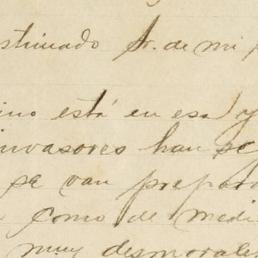 stimado Sr. de mi
ino está en esa y
invasores han se
se van prepara
como de medi
muy desmorale